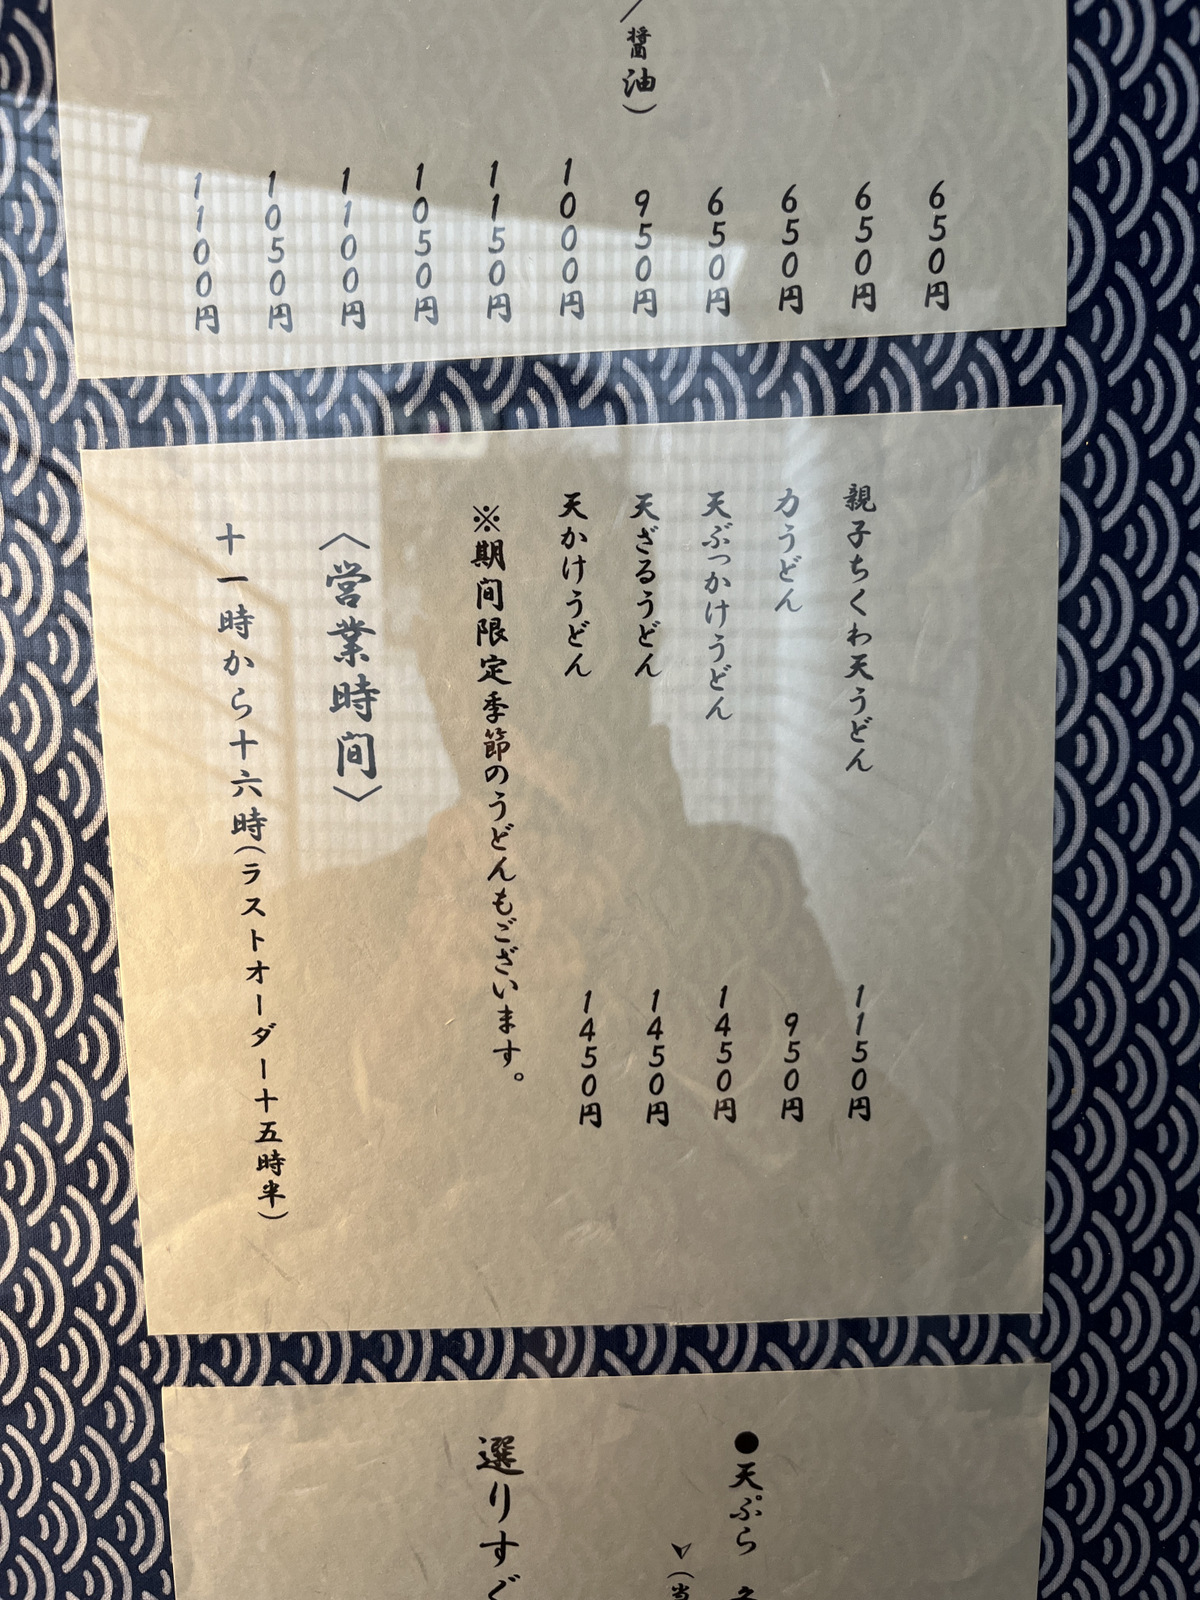 ／醤油）
650円
650円
650円
650円
950円
1000円
1150円
1050円
1100円
1050円
1100円
親子ちくわ天うどん 1150円
力うどん 950円
天ぶっかけうどん 1450円
天ざるうどん 1450円
天かけうどん 1450円
※期間限定季節のうどんもございます。
〈営業時間〉
十一時から十六時（ラストオーダー十五時半）
●天ぷら
選りすぐ